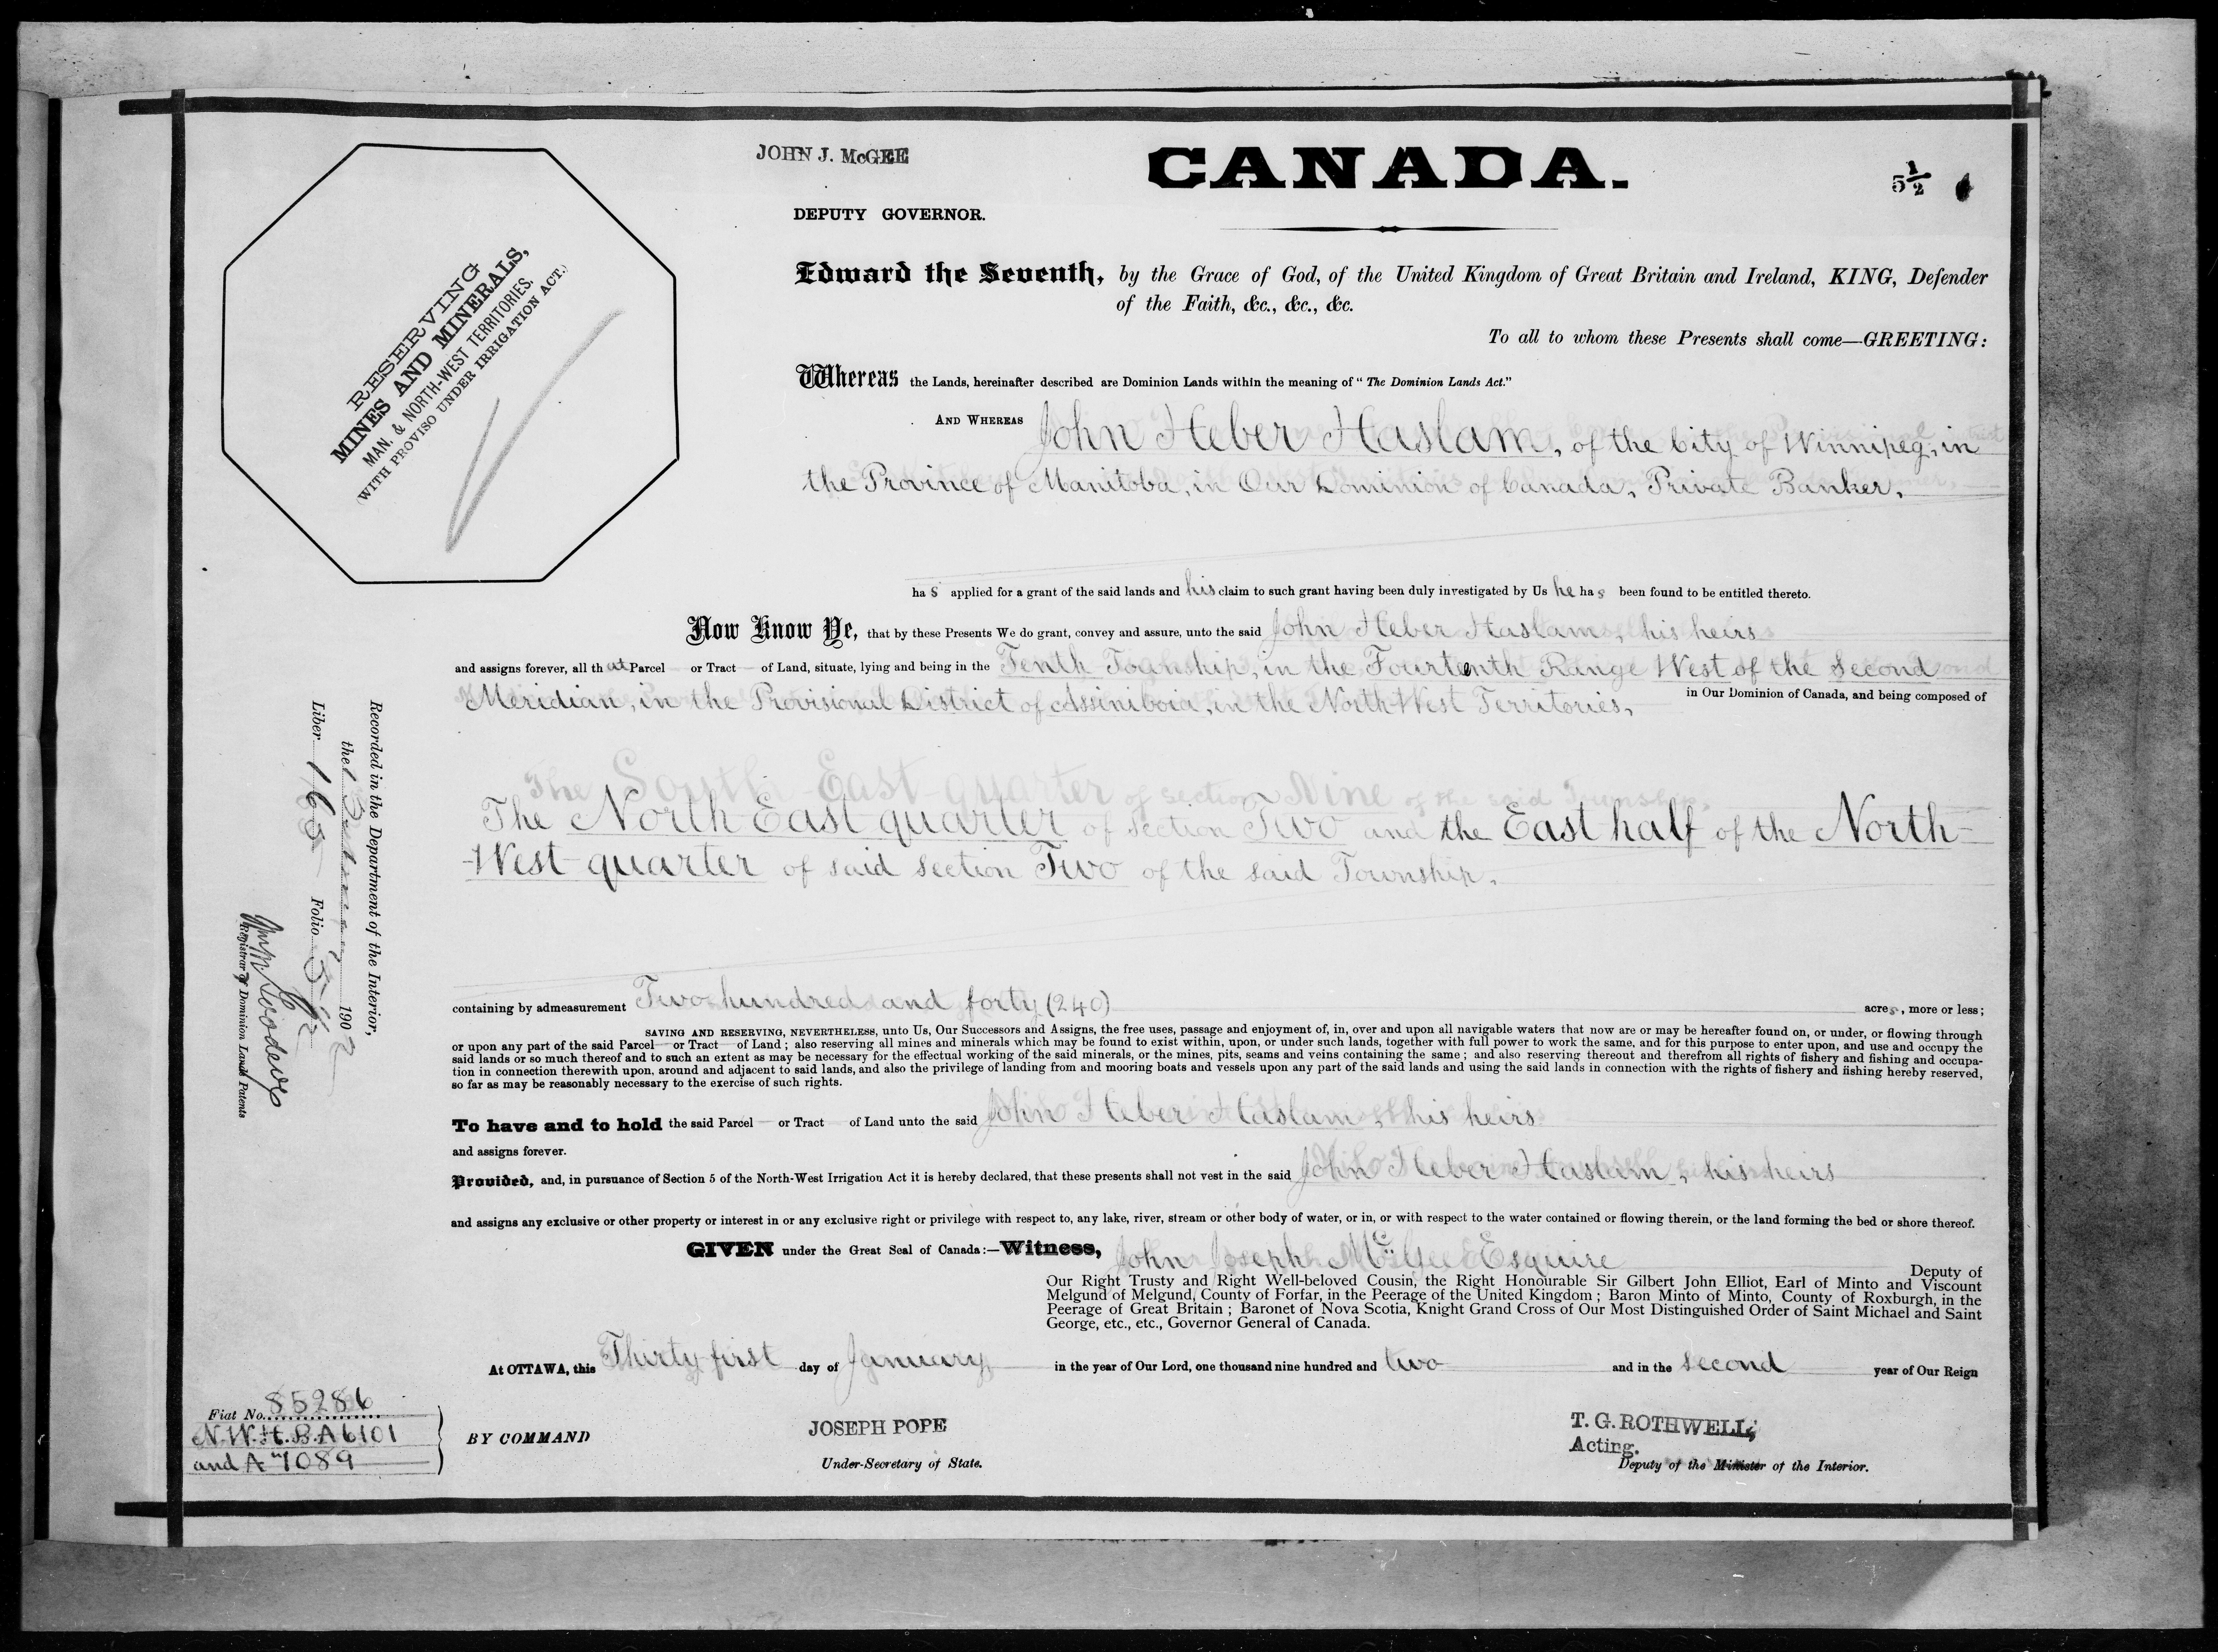 JOHN J. McGEE
CANADA.
5½
DEPUTY GOVERNOR.
RESERVING
MINES AND MINERALS,
MAN. & NORTH-WEST TERRITORIES.
(WITH PROVISO UNDER IRRIGATION ACT.)
Edward the Seventh, by the Grace of God, of the United Kingdom of Great Britain and Ireland, KING, Defender
of the Faith, &c., &c., &c.
To all to whom these Presents shall come—GREETING:
Whereas the Lands, hereinafter described are Dominion Lands within the meaning of "The Dominion Lands Act."
AND WHEREAS John Heber Haslam, of the City of Winnipeg, in
the Province of Manitoba, in Our Dominion of Canada, Private Banker,
has applied for a grant of the said lands and his claim to such grant having been duly investigated by Us he has been found to be entitled thereto.
Now Know Ye, that by these Presents We do grant, convey and assure, unto the said John Heber Haslam, his heirs
and assigns forever, all that Parcel or Tract of Land, situate, lying and being in the Tenth Township, in the Fourteenth Range West of the Second
Meridian, in the Provisional District of Assiniboia, in the North West Territories, in Our Dominion of Canada, and being composed of
The South East quarter of section Nine of the said Township.
The North East quarter of section Two and the East half of the North-
-West quarter of said section Two of the said Township.
containing by admeasurement Two hundred and forty (240) acres, more or less;
SAVING AND RESERVING, NEVERTHELESS, unto Us, Our Successors and Assigns, the free uses, passage and enjoyment of, in, over and upon all navigable waters that now are or may be hereafter found on, or under, or flowing through
or upon any part of the said Parcel or Tract of Land; also reserving all mines and minerals which may be found to exist within, upon, or under such lands, together with full power to work the same, and for this purpose to enter upon, and use and occupy the
said lands or so much thereof and to such an extent as may be necessary for the effectual working of the said minerals, or the mines, pits, seams and veins containing the same; and also reserving thereout and therefrom all rights of fishery and fishing and occupa-
tion in connection therewith upon, around and adjacent to said lands, and also the privilege of landing from and mooring boats and vessels upon any part of the said lands and using the said lands in connection with the rights of fishery and fishing hereby reserved,
so far as may be reasonably necessary to the exercise of such rights.
To have and to hold the said Parcel or Tract of Land unto the said John Heber Haslam, his heirs
and assigns forever.
Provided, and, in pursuance of Section 5 of the North-West Irrigation Act it is hereby declared, that these presents shall not vest in the said John Heber Haslam, his heirs
and assigns any exclusive or other property or interest in or any exclusive right or privilege with respect to, any lake, river, stream or other body of water, or in, or with respect to the water contained or flowing therein, or the land forming the bed or shore thereof.
GIVEN under the Great Seal of Canada:—Witness, John Joseph McGee Esquire
Deputy of
Our Right Trusty and Right Well-beloved Cousin, the Right Honourable Sir Gilbert John Elliot, Earl of Minto and Viscount
Melgund of Melgund, County of Forfar, in the Peerage of the United Kingdom; Baron Minto of Minto, County of Roxburgh, in the
Peerage of Great Britain; Baronet of Nova Scotia, Knight Grand Cross of Our Most Distinguished Order of Saint Michael and Saint
George, etc., etc., Governor General of Canada.
At OTTAWA, this Thirty first day of January, in the year of Our Lord, one thousand nine hundred and two and in the second year of Our Reign
BY COMMAND
JOSEPH POPE
Under-Secretary of State.
T. G. ROTHWELL,
Acting.
Deputy of the Minister of the Interior.
Fiat No. 85286
N.W.H.B.A 6101
and A 7089
Recorded in the Department of the Interior,
the 190 2
Liber 168 Folio
Registrar of Dominion Lands Patents